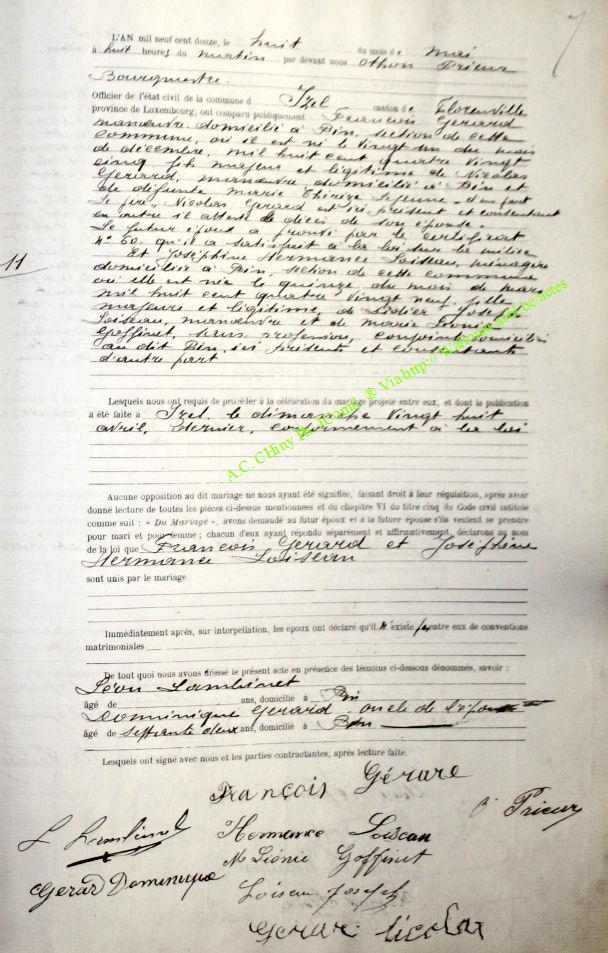 7
L'AN mil neuf cent douze, le huit du mois de mai
à huit heures du matin par devant nous Othon Prieur
Bourgmestre.
Officier de l'état civil de la commune d Izel canton de Florenville
province de Luxembourg, ont comparu publiquement François Gerard
manœuvre domicilié à Pin, section de cette
commune, où il est né le vingt un du mois
de décembre, mil huit cent quatre vingt
cinq fils majeur et légitime de Nicolas
Gerard, manœuvre domicilié à Pin et
de défunte Marie Thérèse Lejeune d'une part
Le père, Nicolas Gerard est ici présent et consentant
en outre il atteste le décès de son épouse.
Le futur époux a prouvé par le certificat
n° 60. qu'il a satisfait à la loi sur la milice
11
Et Joséphine Hermance Loiseau, ménagère
domiciliée à Pin, section de cette commune
où elle est née le quinze du mois de mars
mil huit cent quatre vingt neuf, fille
majeure et légitime, de Joseph
Loiseau, manœuvre et de Marie
Goffinet, sans profession, conjoints domiciliés
au dit Pin, ici présents et consentants
d'autre part
Lesquels nous ont requis de procéder à la célébration du mariage projeté entre eux, et dont la publication
a été faite à Izel, le dimanche vingt huit
avril, dernier, conformément à la loi
Aucune opposition au dit mariage ne nous ayant été signifiée, faisant droit à leur réquisition, après avoir
donné lecture de toutes les pièces ci-dessus mentionnées et du chapitre VI du titre cinq du Code civil intitulé
comme suit : « Du Mariage », avons demandé au futur époux et à la future épouse s'ils veulent se prendre
pour mari et pour femme ; chacun d'eux ayant répondu séparément et affirmativement, déclarons au nom
de la loi que François Gerard et Joséphine
Hermance Loiseau
sont unis par le mariage.
Immédiatement après, sur interpellation, les époux ont déclaré qu'il n'existe pas entre eux de conventions
matrimoniales
De tout quoi nous avons dressé le présent acte en présence des témoins ci-dessous dénommés, savoir :
Léon Lambinet
âgé de ans, domicilié à Pin
Dominique Gerard, oncle de l'époux
âgé de septante deux ans, domicilié à Pin
Lesquels ont signé avec nous et les parties contractantes, après lecture faite.
François Gérard
O Prieur
L Lambinet
Hermance Loiseau
M Léonie Goffinet
Gerard Dominique
Loiseau Joseph
Gerard Nicolas
A.C. CHiny